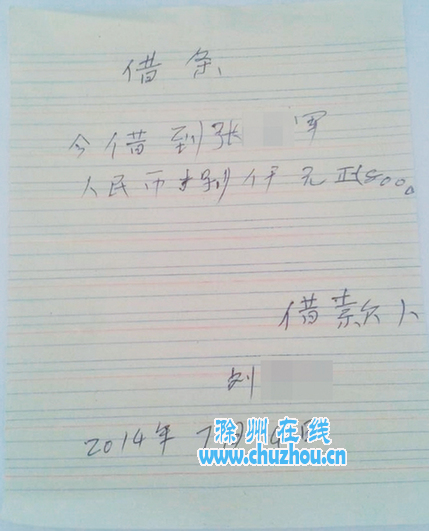 借条
今借到张 军
人民币捌仟元正8000
借款人
刘
2014年7月4日
滁州在线
www.chuzhou.cn